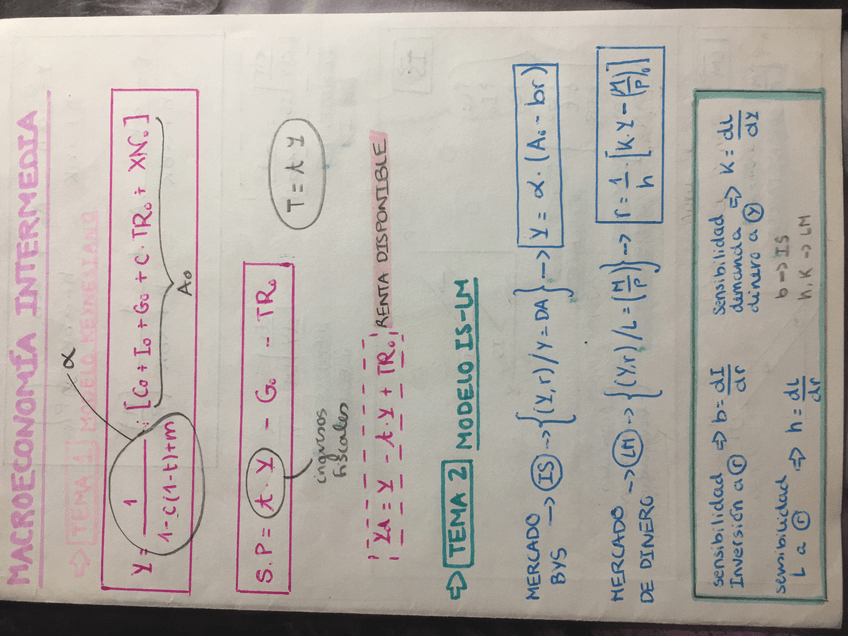 MACROECONOMÍA INTERMEDIA
⇒ TEMA 1 MODELO KEYNESIANO
α
Y = 1 / 1-c(1-t)+m · [C₀ + I₀ + G₀ + C · TR₀ + XN₀]
A₀
S.P = t · Y - G₀ - TR₀
T = t Y
ingresos
fiscales
Yd = Y - t · Y + TR₀ RENTA DISPONIBLE
⇒ TEMA 2 MODELO IS-LM
MERCADO BYS → IS → {(Y, r) / Y = DA} → Y = α · (A₀ - br)
MERCADO DE DINERO → LM → {(Y, r) / L = (M/P)} → r = 1/h · [K · Y - (M/P)₀]
sensibilidad
Inversión a r ⇒ b = dI/dr
Sensibilidad
demanda
dinero a Y ⇒ K = dL/dY
sensibilidad
L a r ⇒ h = dL/dr
b → IS
h, K → LM